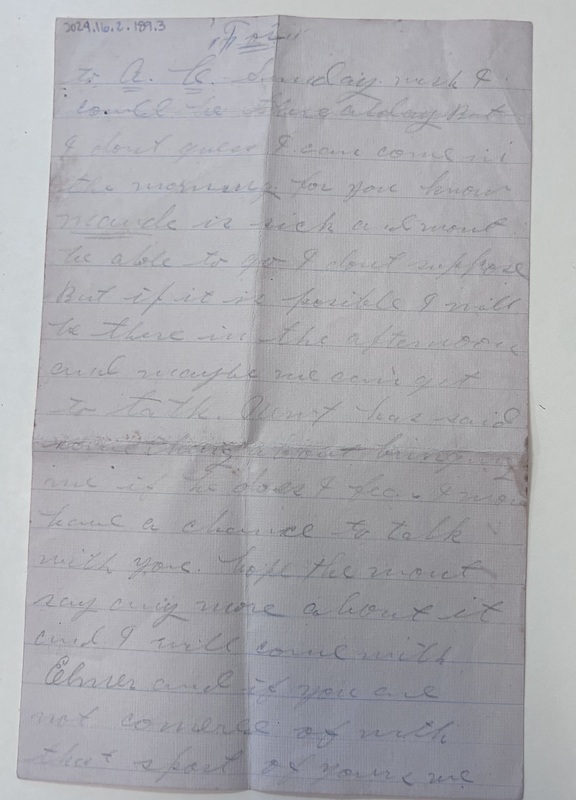 2024.16.2.189.3
to A. C. Sunday wish I
could be there all day But
I dont guess I can come in
the morning for you know
maude is sick a I wont
be able to go I dont suppose
But if it is posible I will
be there in the afternoon
and maybe we can get
to talk. has said
something about bringing
me if he does I I wont
have a chance to talk
with you. hope the wont
say any more about it
and I will come with
Elmer and if you are
not of with
that sport of yours we